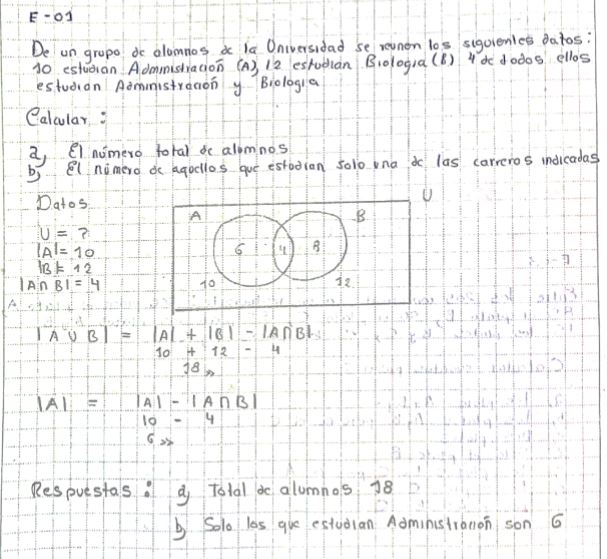 E-01
De un grupo de alumnos de la Universidad se reunen los siguientes datos:
10 estudian Administración (A), 12 estudian Biologia (B) 4 de todos ellos
estudian Administración y Biologia
Calcular :
a) El número total de alumnos
b) El número de aquellos que estudian solo una de las carreras indicadas
Datos
U = ?
|A| = 10
|B| = 12
|A∩B| = 4
U
A B
6 4 8
10 12
|A ∪ B| = |A| + |B| - |A∩B|
10 + 12 - 4
18 »
|A| = |A| - |A∩B|
10 - 4
6 »
Respuestas : a) Total de alumnos 18
b) Solo los que estudian Administración son 6